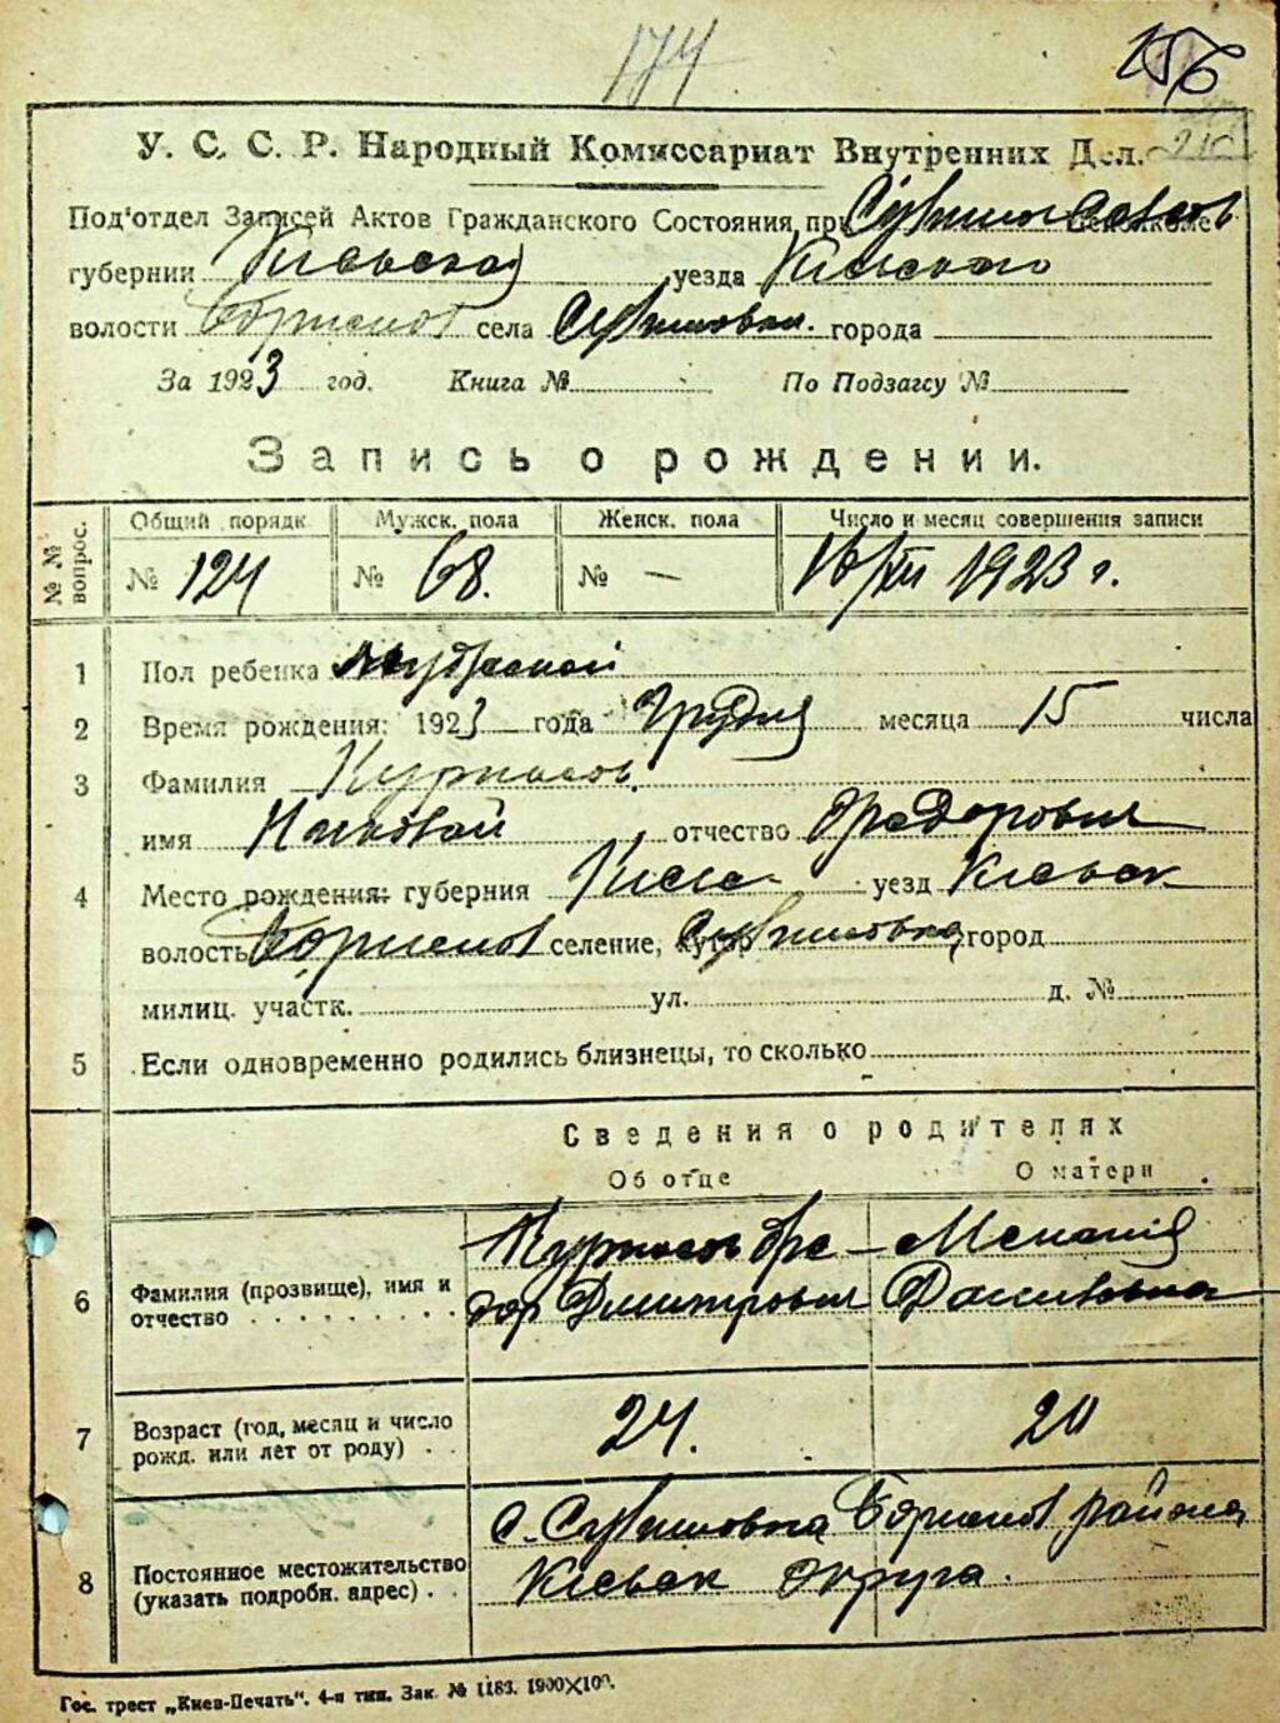 174
156
У. С. С. Р. Народный Комиссариат Внутренних Дел. 210
Под'отдел Записей Актов Гражданского Состояния при
губернии Киевская уезда Киевского
волости села города
За 1923 год. Книга № По Подзагсу №
Запись о рождении.
№ № вопрос. Общий порядк Мужск. пола Женск. пола Число и месяц совершения записи
№ 124 № 68. № — 16/XII 1923 г.
1 Пол ребенка мужской
2 Время рождения: 1923 года Грудня месяца 15 числа
3 Фамилия
имя отчество Федорович
4 Место рождения: губерния Киев- уезд Киевск
волость селение, хутор город
милиц. участк. ул. д. №
5 Если одновременно родились близнецы, то сколько
Сведения о родителях
Об отце О матери
6 Фамилия (прозвище), имя и отчество Фе- Мелания
дор Дмитрович Даниловна
7 Возраст (год, месяц и число рожд. или лет от роду) 24. 20
8 Постоянное местожительство (указать подробн. адрес) с. района
Киевск округа.
Гос. трест „Киев-Печать“. 4-я тип. Зак. № 1183. 1900×100.